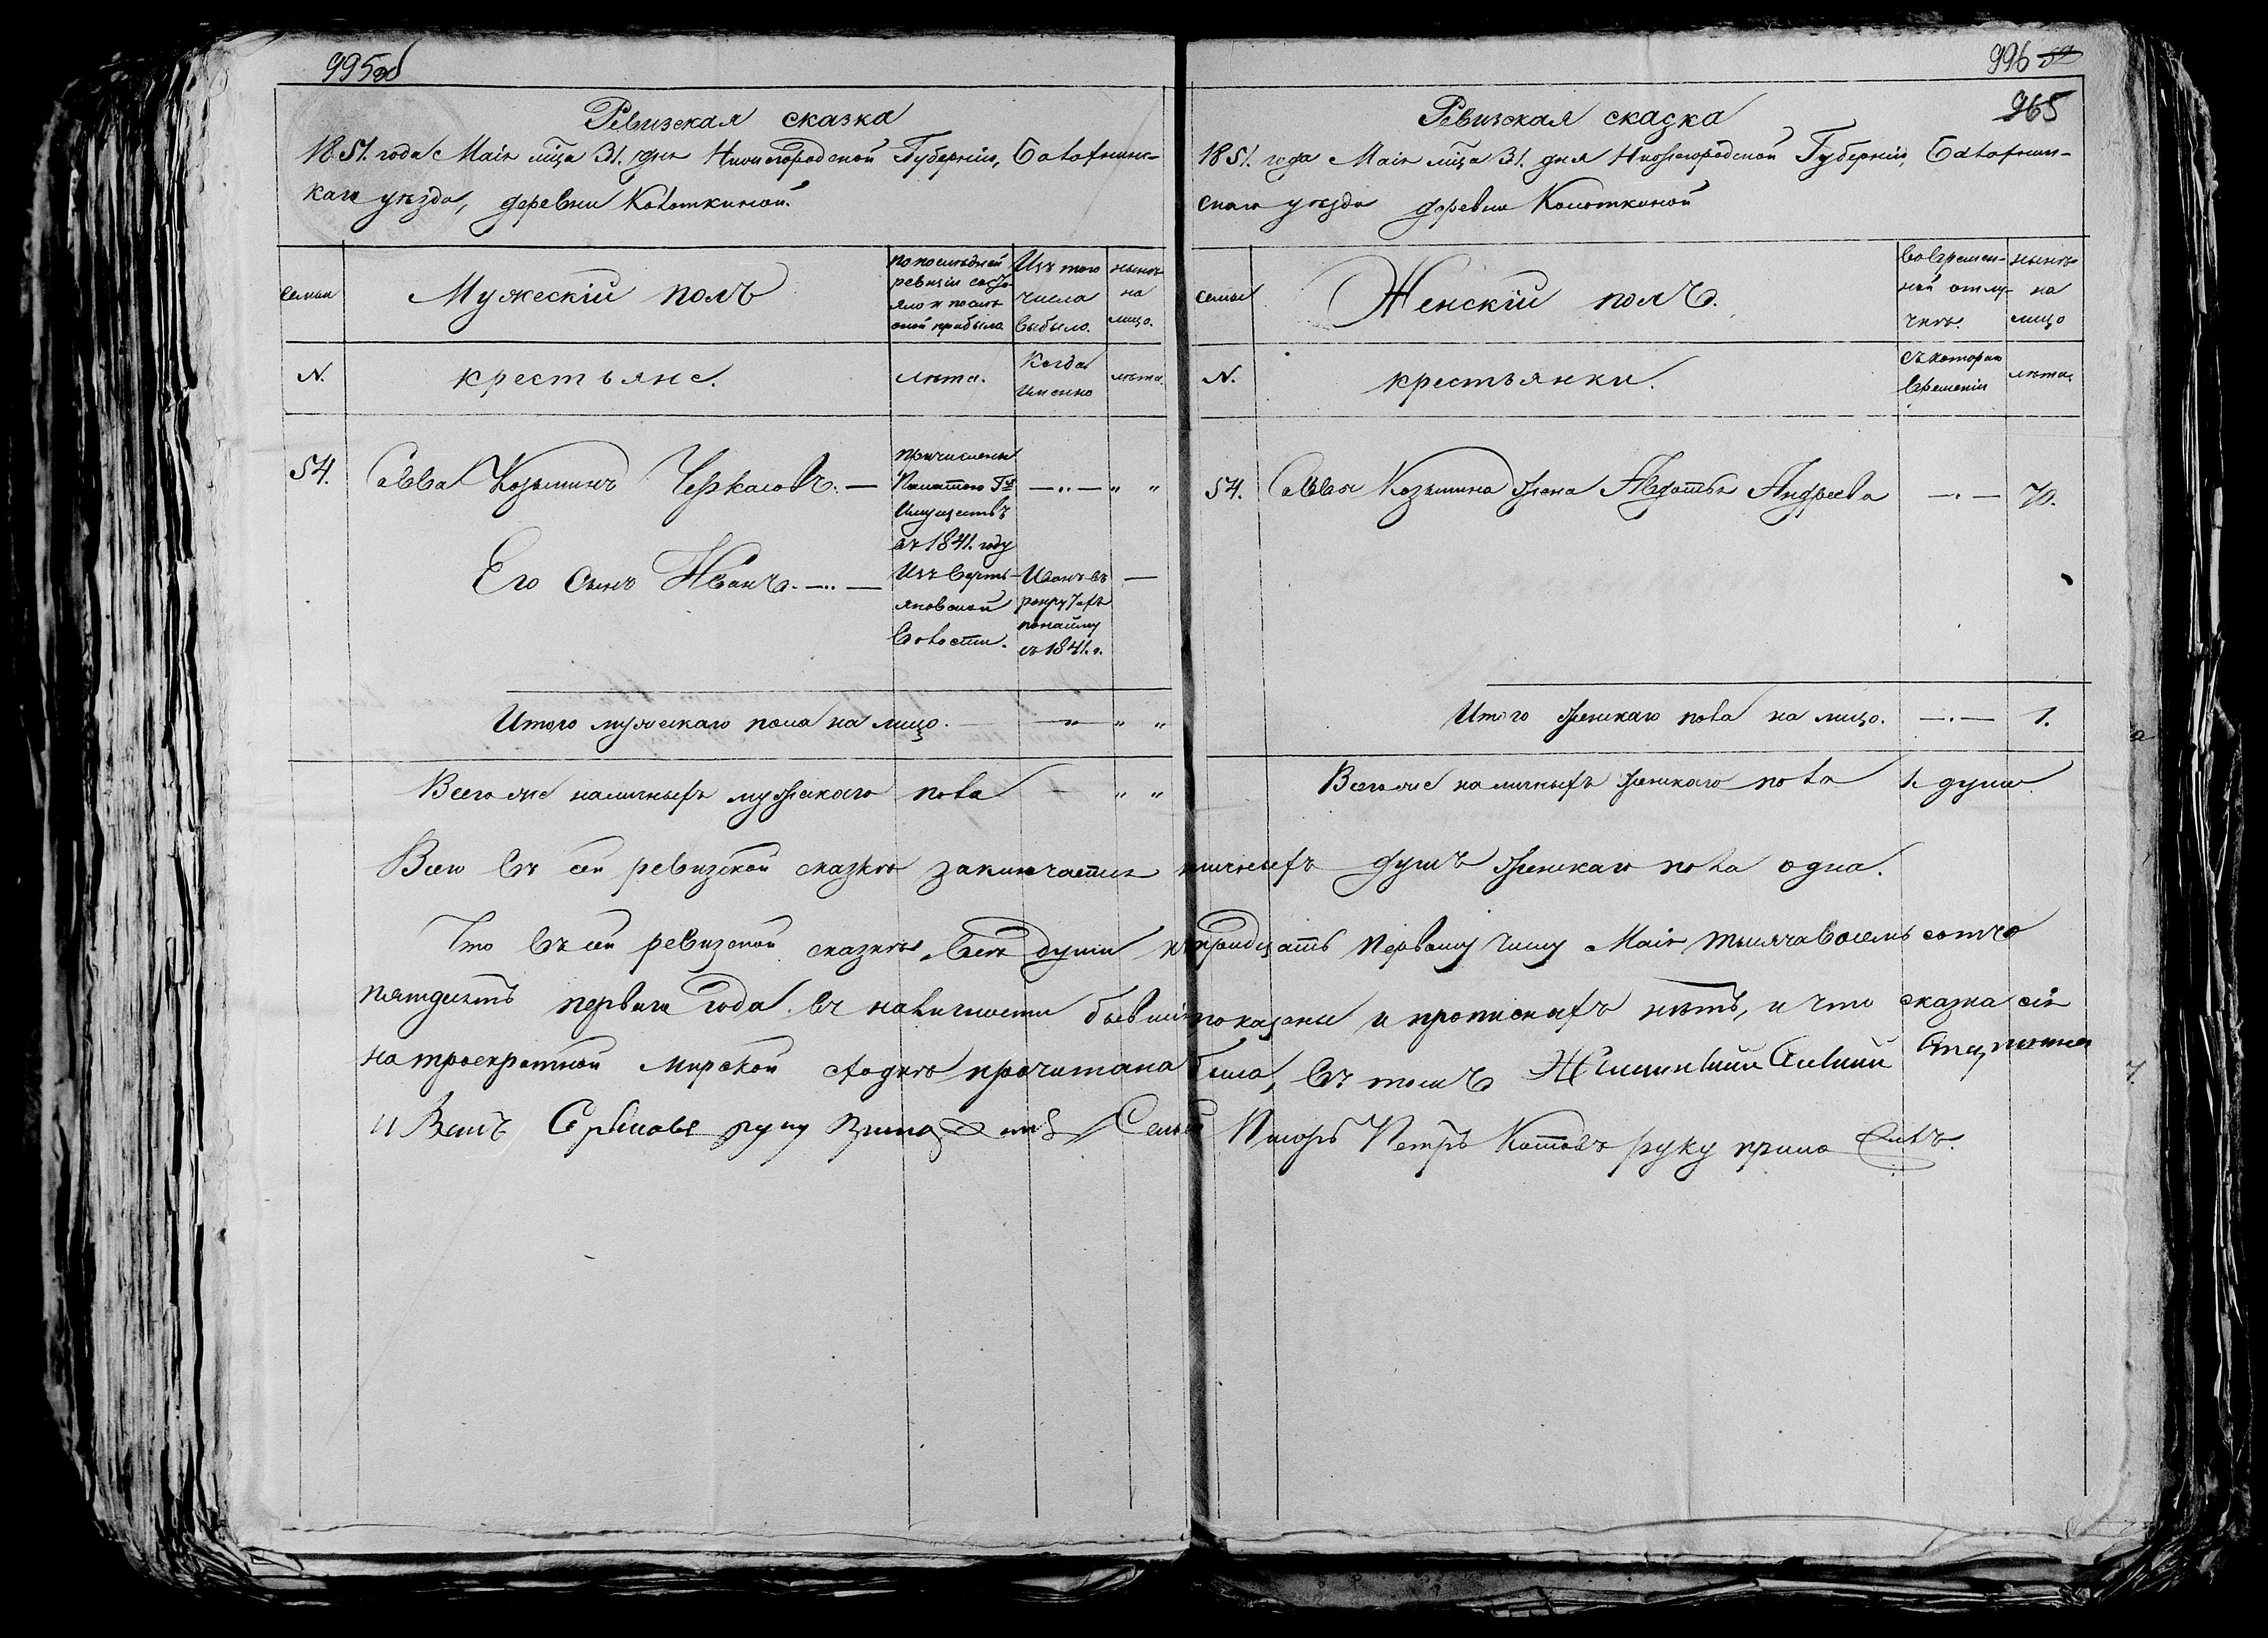 995об
Ревизская сказка
1851. года Маія мца 31. дня Нижегородской Губерніи, Балахнин-
скаго уѣзда, деревни Колоткиной.
Семьи
Мужескій полъ
по послѣдней
ревизіи состо
яло и послѣ
оной прибыло
Изъ того
числа
выбыло.
нынѣ
на
лицо.
N.
крестьяне.
лѣта.
Когда
именно
лѣта.
54.
Савва Козьминъ Черкасовъ. —
причислены
Палатою Гх
Имуществъ
въ 1841. году
— „ — „ „
Его сынъ Иванъ. — „ —
Изъ
Волости.
Иванъ въ
рекрутахъ
по найму
съ 1841. г.
—
Итого мужескаго пола на лицо. — „ — „ „
Всего же наличныхъ мужескаго пола — „ „
996 59
965
Ревизская сказка
1851. года Маія мца 31. дня Нижегородской Губерніи, Балахнин-
скаго уѣзда деревни Колоткиной
семьи
Женскій полъ.
Во времен-
ной отлу-
чкѣ.
нынѣ
на
лицо
N.
крестьянки.
съ котораго
времени
лѣта.
54. Саввы Козьмина жена Авдотья Андреева — „ — 70.
Итого женскаго пола на лицо. — „ — 1.
Всего же наличныхъ женскаго пола 1. душа.
Всего въ сей ревизской сказкѣ заключается личныхъ душъ женскаго пола одна.
Что въ сей ревизской сказкѣ, всѣ души къ тридцать первому числу Маія тысяча восемь сотъ
пятдесятъ перваго года въ наличности бывшія показаны и прописныхъ нѣтъ, и что сказка сія
на троекратной мирской сходкѣ прочитана была, въ томъ
руку Сельской Писарь Петръ Котовъ руку приложилъ.